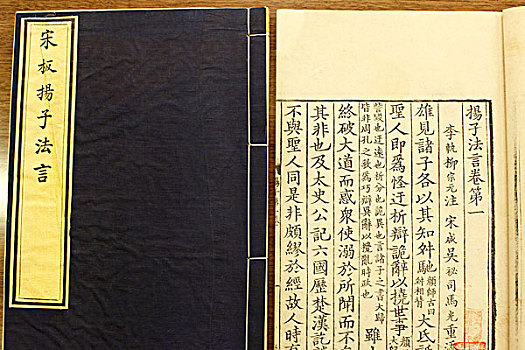 宋板揚子法言
揚子法言卷第一
李軌柳宗元注 宋咸吳祕司馬光重添
雄見諸子各以其知舛馳 大氐
聖人即爲怪迂析辯詭辭以撓世事
皆非周孔之教爲巧辯異辭以攪亂時政也 雖
終破大道而惑衆使溺於所聞而不
其非也及太史公記六國歷楚漢記
不與聖人同是非頗繆於經故人時有